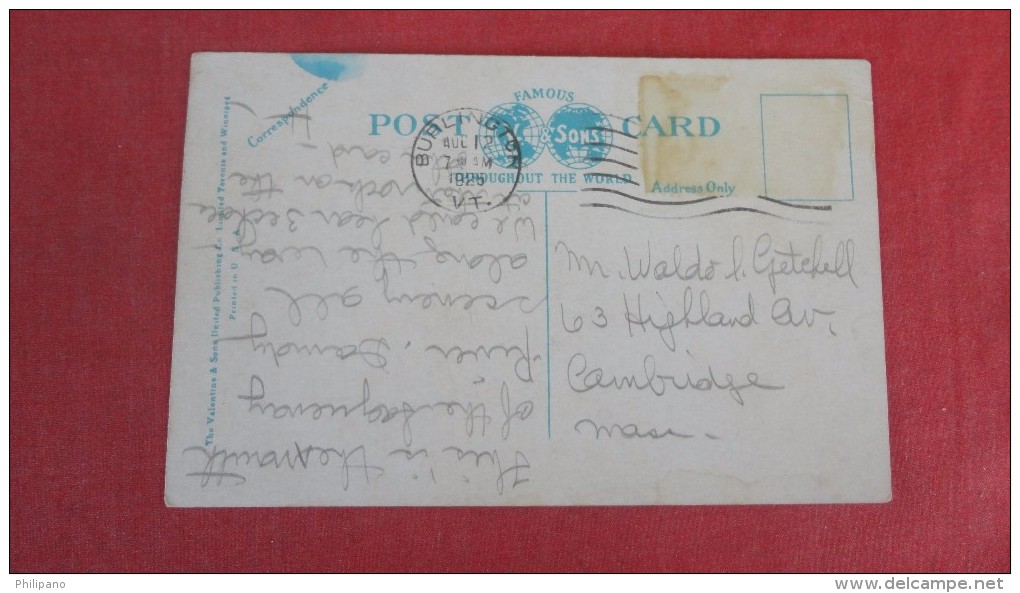 Correspondence
FAMOUS
POST CARD
& SONS
THROUGHOUT THE WORLD
Address Only
BURLINGTON
AUG 12
7 AM
1925
VT.
The Valentine & Sons United Publishing Co. Limited Toronto and Winnipeg
Printed in U. S. A.
Mr. Waldo L. Getchell
63 Highland Av.
Cambridge
Mass.
This is the mouth
of the Saguenay
River. Dandy
scenery all
along the way
We could hear 3 echoes
rock on the
card -
H
Philipano
www.delcampe.net